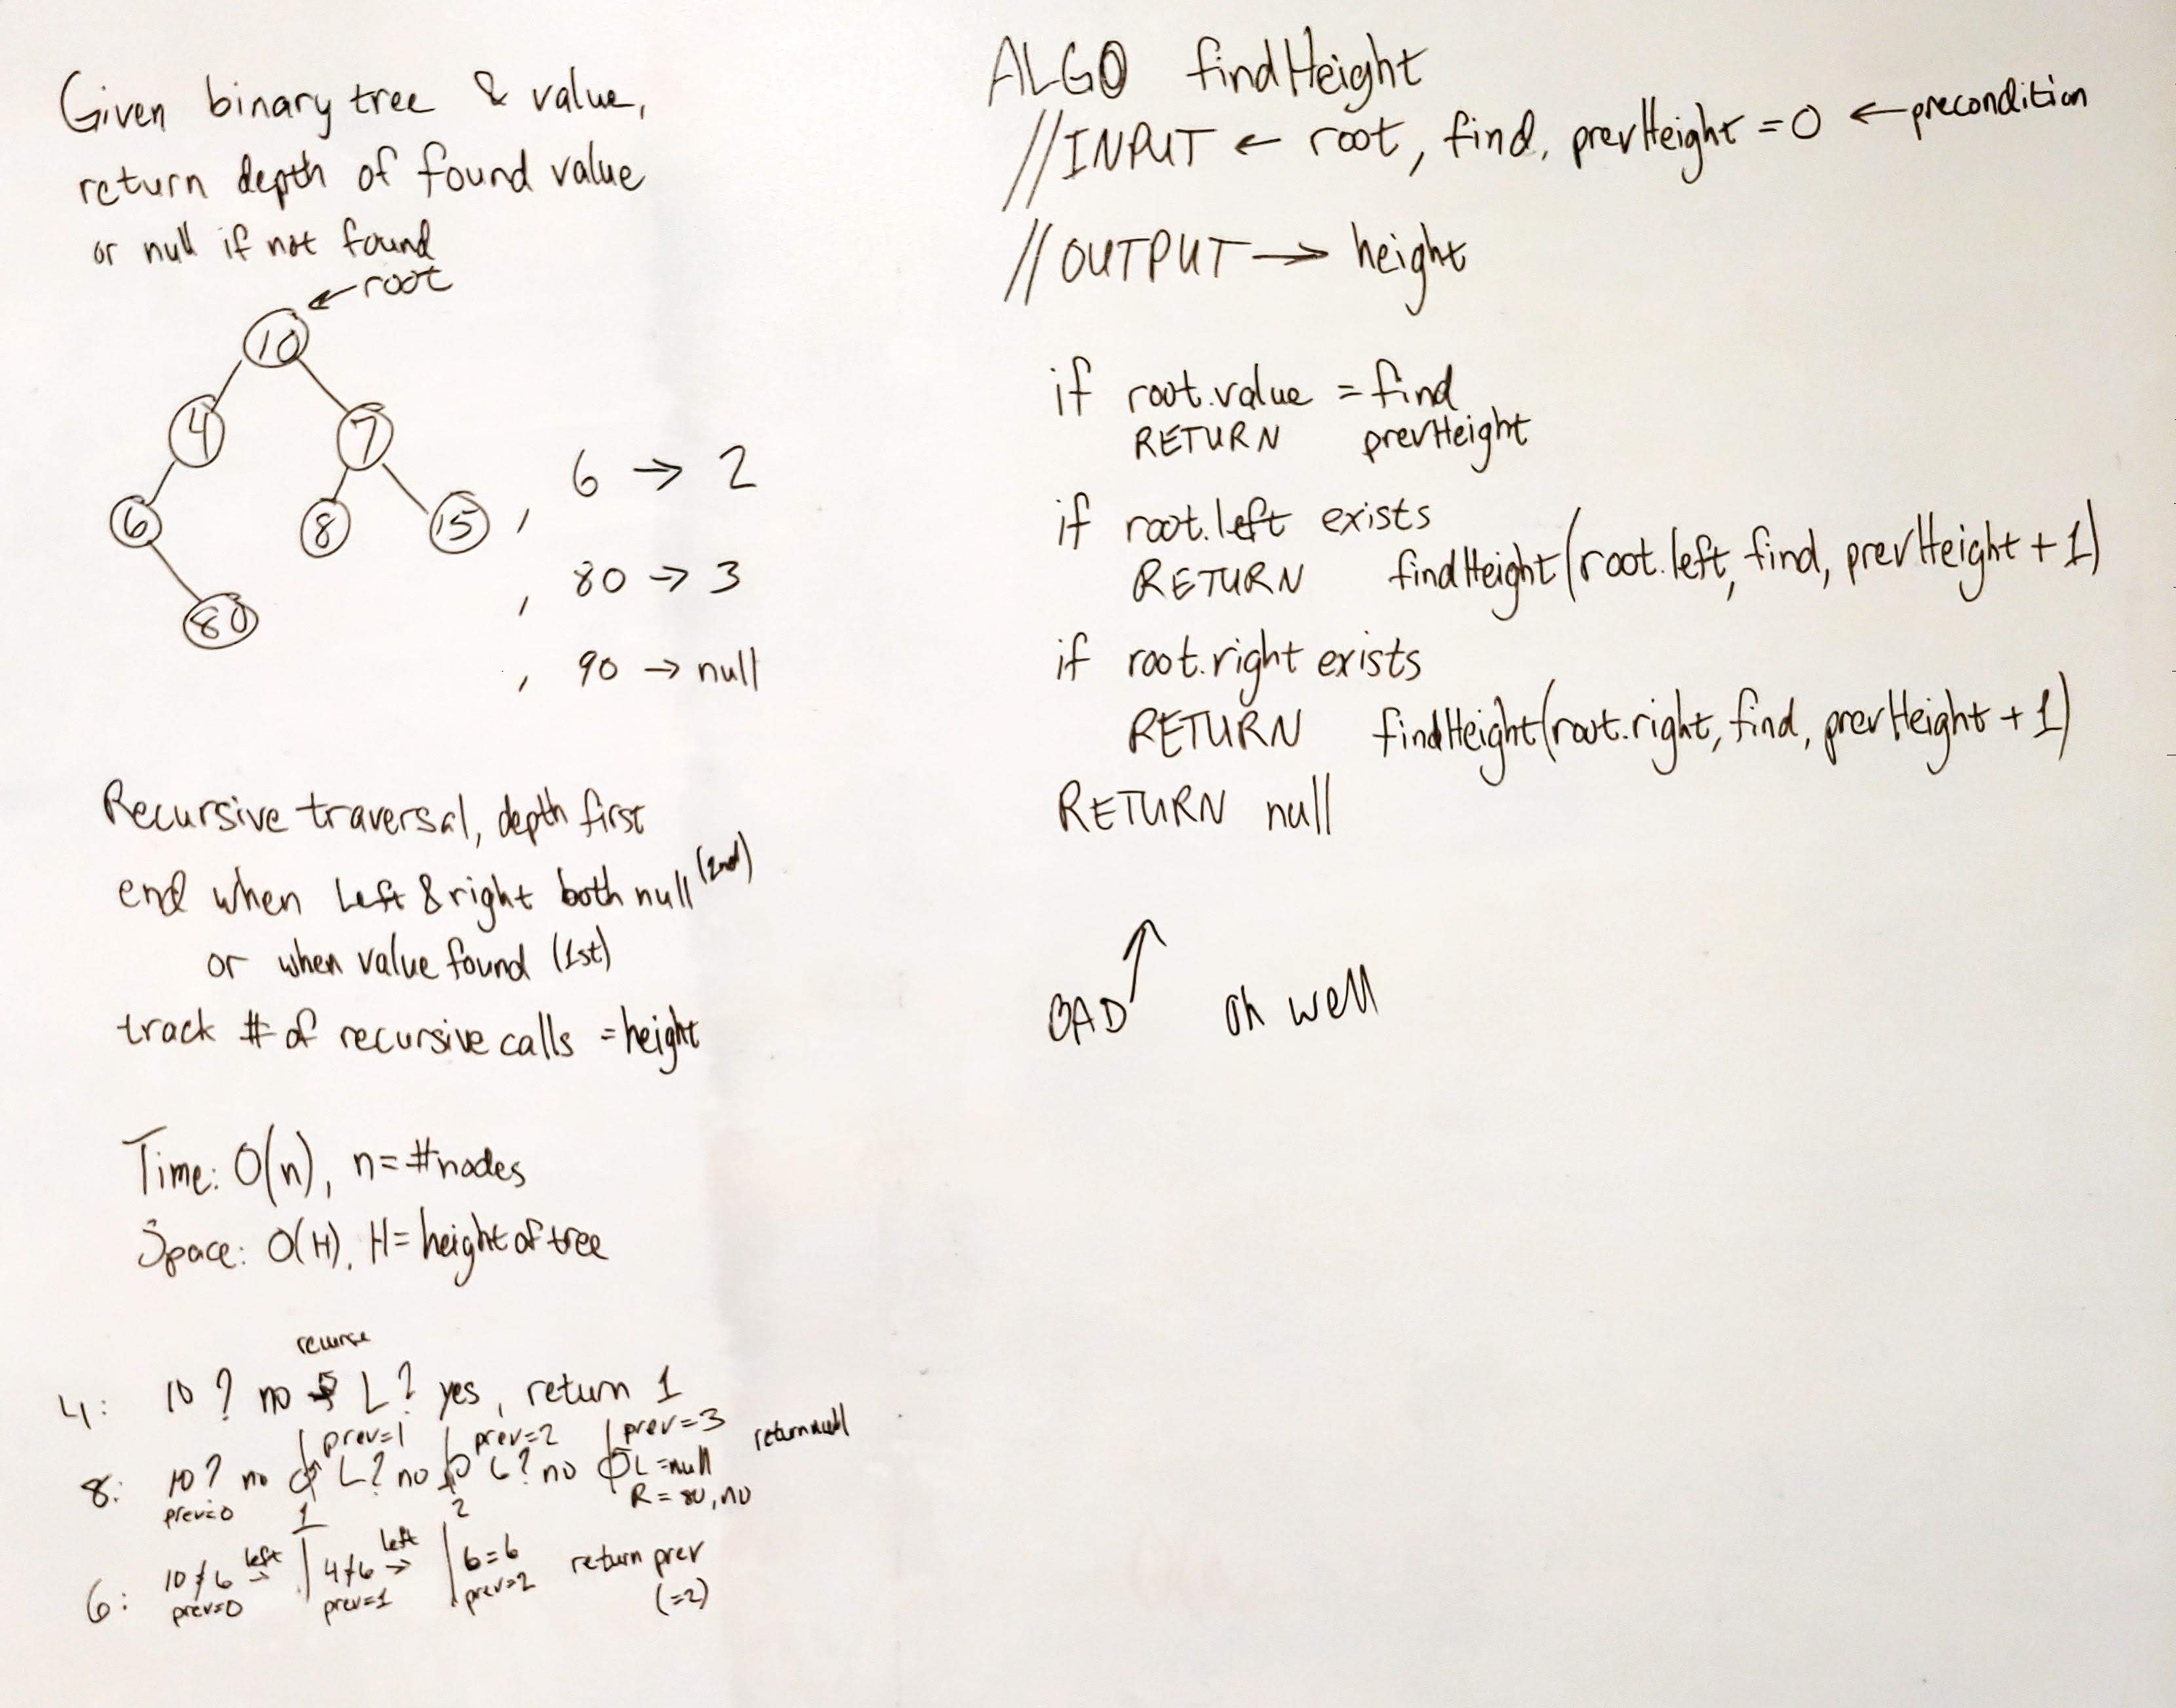 Given binary tree & value,
return depth of found value
or null if not found
← root
10
4
7
6
8
15
80
, 6 → 2
, 80 → 3
, 90 → null
Recursive traversal, depth first
end when left & right both null (2nd)
or when value found (1st)
track # of recursive calls = height
Time: O(n), n = #nodes
Space: O(H), H = height of tree
recurse
4: 10 ? no → L ? yes, return 1
prev=1 prev=2 prev=3 return null
8: 10 ? no L ? no L ? no L = null
prev=0 R = 80, no
1 2
6: 10 ≠ 6 left → 4 ≠ 6 left → 6 = 6 return prev
prev=0 prev=1 prev=2 (=2)
ALGO findHeight
// INPUT ← root, find, prevHeight = 0 ← precondition
// OUTPUT → height
if root.value = find
RETURN prevHeight
if root.left exists
RETURN findHeight(root.left, find, prevHeight + 1)
if root.right exists
RETURN findHeight(root.right, find, prevHeight + 1)
RETURN null
BAD ↑ oh well